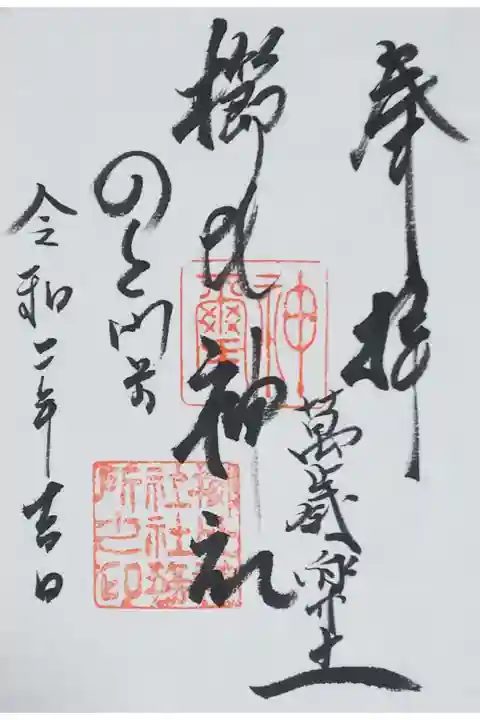 奉拝
萬歳楽土
櫛比神社
神璽
櫛比神
社社務
所之印
のと門前
令和二年吉日